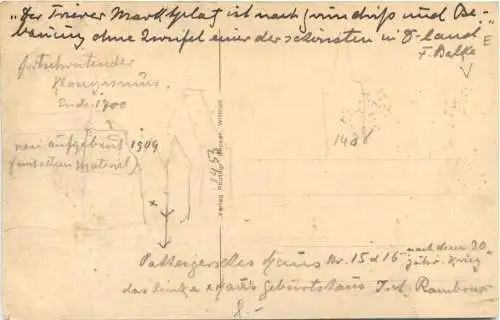 "Der Trierer Marktplatz ist nach Grundriß und Be-
bauung ohne Zweifel einer der schönsten in D-land"
F. Balke
fortschreitender
Klassizismus,
Ende 1700
neu aufgebaut 1909
(mit altem Material)
1453
Verlag Wittlich
1488
x
Haus Nr. 15 d 16 nach dem 30
jähr. Krieg
das linke x Haus Geburtshaus Joh. Ramboux
8.-
E